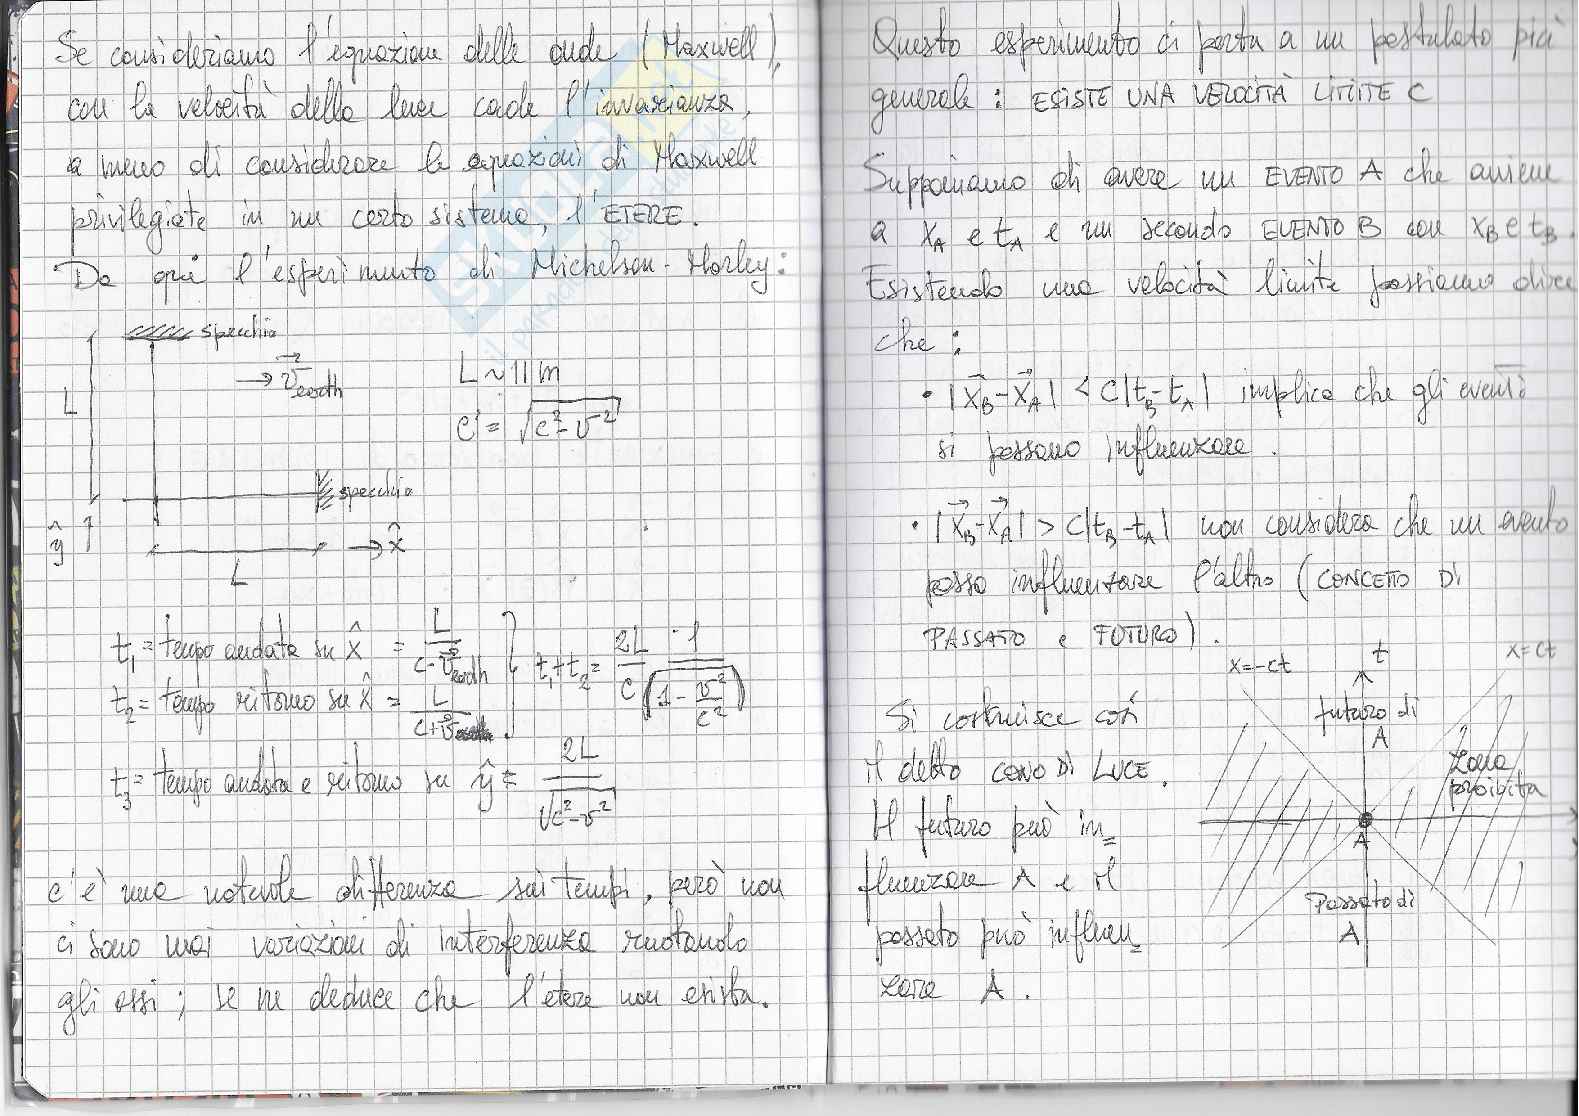 Se consideriamo l'equazione delle onde (Maxwell),
con la velocità della luce cade l'invarianza,
a meno di considerare le equazioni di Maxwell
privilegiate in un certo sistema, l'ETERE.
Da qui l'esperimento di Michelson-Morley:
specchio
→ v⃗earth
L ~ 11 m
L
c' = √(c²-v²)
specchio
ŷ
→ x̂
L
t₁ = tempo andata su x̂ = L/(c-v⃗earth)
t₁+t₂ = 2L/c · 1/(1-v²/c²)
t₂ = tempo ritorno su x̂ = L/(c+v⃗earth)
t₃ = tempo andata e ritorno su ŷ = 2L/√(c²-v²)
c'è una notevole differenza sui tempi, però non
ci sono mai variazioni di interferenza ruotando
gli assi; se ne deduce che l'etere non esista.
Questo esperimento ci porta a un postulato più
generale: ESISTE UNA VELOCITÀ LIMITE C
Supponiamo di avere un EVENTO A che avviene
a xA e tA e un secondo EVENTO B con xB e tB.
Esistendo una velocità limite possiamo dire
che:
• |x⃗B-x⃗A| < c|tB-tA| implica che gli eventi
si possano influenzare.
• |x⃗B-x⃗A| > c|tB-tA| non considera che un evento
possa influenzare l'altro (CONCETTO DI
PASSATO e FUTURO).
Si costruisce così
il detto CONO DI LUCE.
Il futuro può in=
fluenzare A e il
passato può influen=
zare A.
x=-ct
t
x=ct
futuro di
A
Zona
proibita
A
Passato di
A
skuola.net